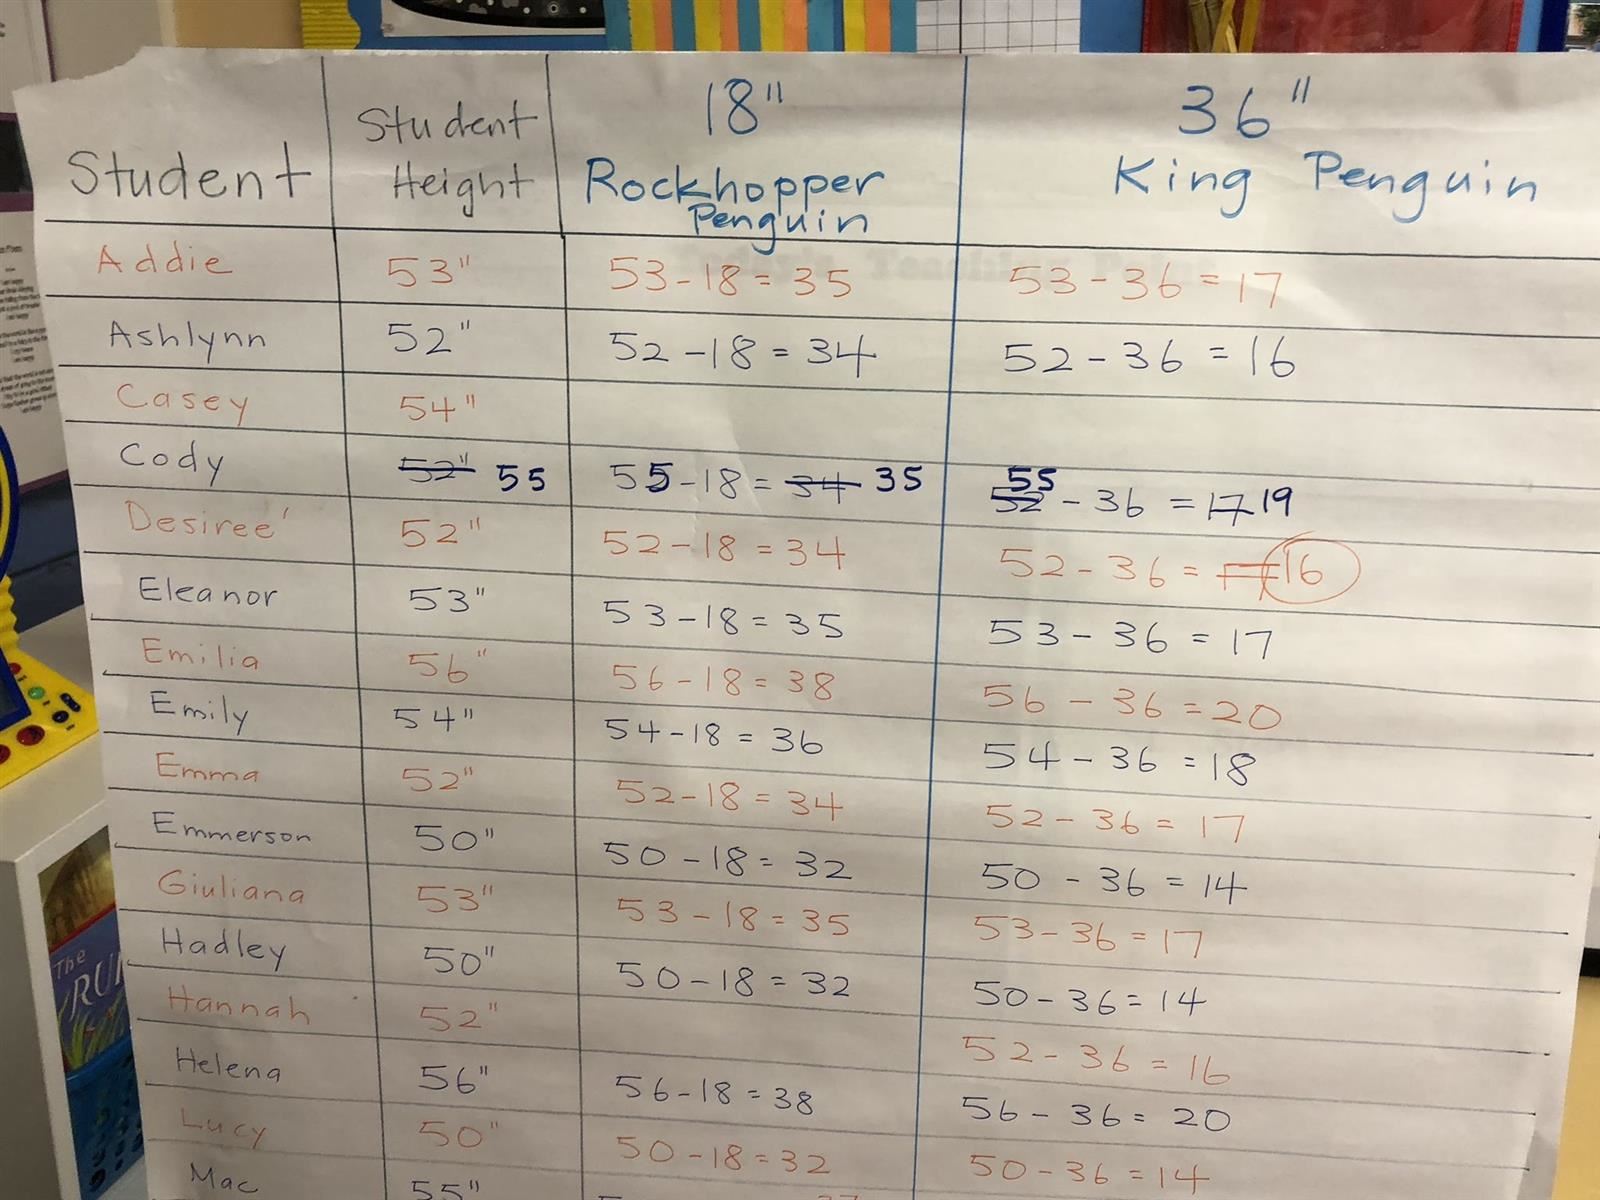 Student
Student Height
18"
Rockhopper Penguin
36"
King Penguin
Addie 53" 53-18=35 53-36=17
Ashlynn 52" 52-18=34 52-36=16
Casey 54"
Cody 52" 55 55-18=34 35 52 55-36=17 19
Desiree' 52" 52-18=34 52-36=17 16
Eleanor 53" 53-18=35 53-36=17
Emilia 56" 56-18=38 56-36=20
Emily 54" 54-18=36 54-36=18
Emma 52" 52-18=34 52-36=17
Emmerson 50" 50-18=32 50-36=14
Giuliana 53" 53-18=35 53-36=17
Hadley 50" 50-18=32 50-36=14
Hannah 52" 52-36=16
Helena 56" 56-18=38 56-36=20
Lucy 50" 50-18=32 50-36=14
Mac 55"
The